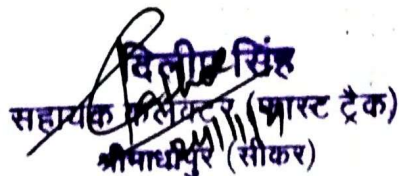 दिलीप सिंह
सहायक कलेक्टर (फास्ट ट्रैक)
श्रीमाधोपुर (सीकर)